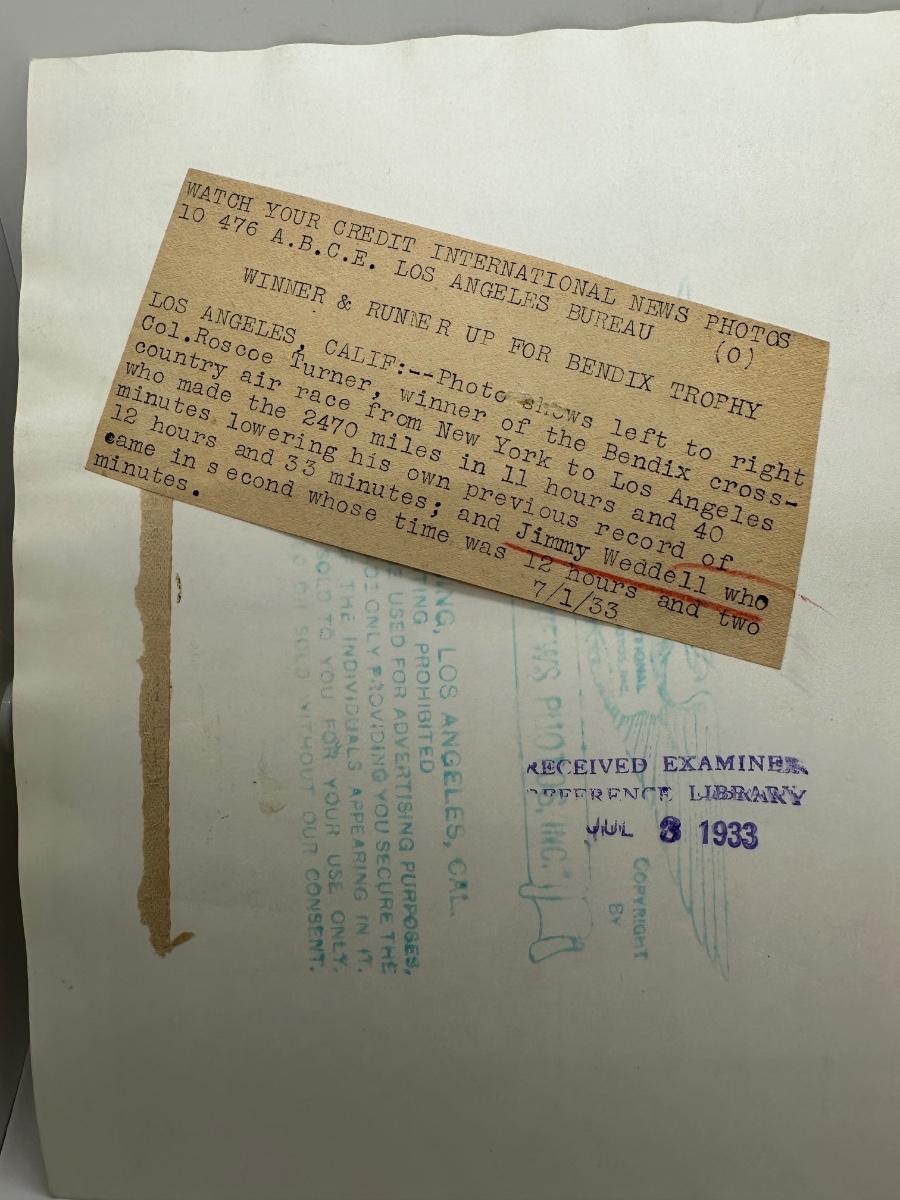 WATCH YOUR CREDIT INTERNATIONAL NEWS PHOTOS
10 476 A.B.C.E. LOS ANGELES BUREAU (O)
WINNER & RUNNER UP FOR BENDIX TROPHY
LOS ANGELES, CALIF:--Photo shows left to right
Col.Roscoe Turner, winner of the Bendix cross-
country air race from New York to Los Angeles
who made the 2470 miles in 11 hours and 40
minutes lowering his own previous record of
12 hours and 33 minutes; and Jimmy Weddell who
came in second whose time was 12 hours and two
minutes.
7/1/33
RECEIVED EXAMINER
REFERENCE LIBRARY
JUL 3 1933
COPYRIGHT
BY
NEWS PHOTOS, INC.
LOS ANGELES, CAL.
PROHIBITED
USED FOR ADVERTISING PURPOSES,
ONLY PROVIDING YOU SECURE THE
THE INDIVIDUALS APPEARING IN IT.
SOLD TO YOU FOR YOUR USE ONLY.
OR SOLD WITHOUT OUR CONSENT.